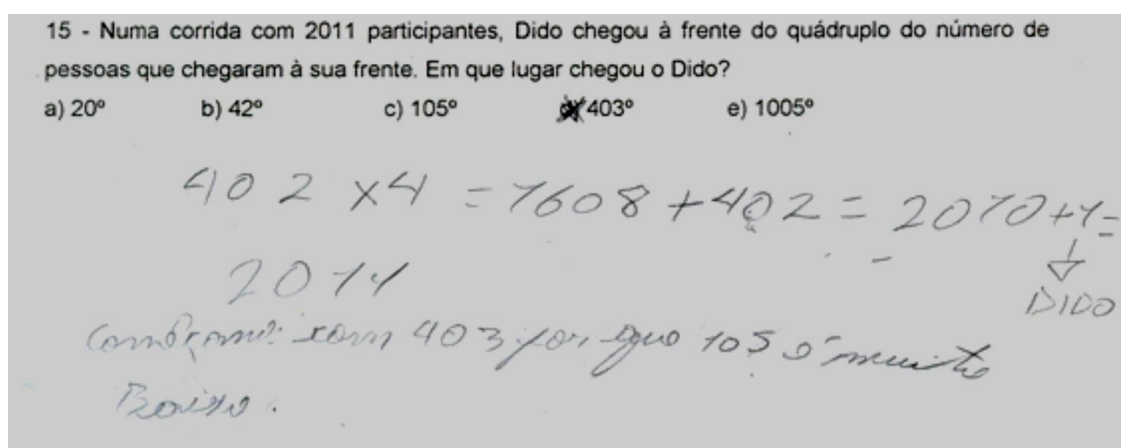 15 - Numa corrida com 2011 participantes, Dido chegou à frente do quádruplo do número de
pessoas que chegaram à sua frente. Em que lugar chegou o Dido?
a) 20º b) 42º c) 105º d) 403º e) 1005º
402 x 4 = 1608 + 402 = 2010 + 1 =
2011
DIDO
com 403 por que 105 é muito
Baixo.